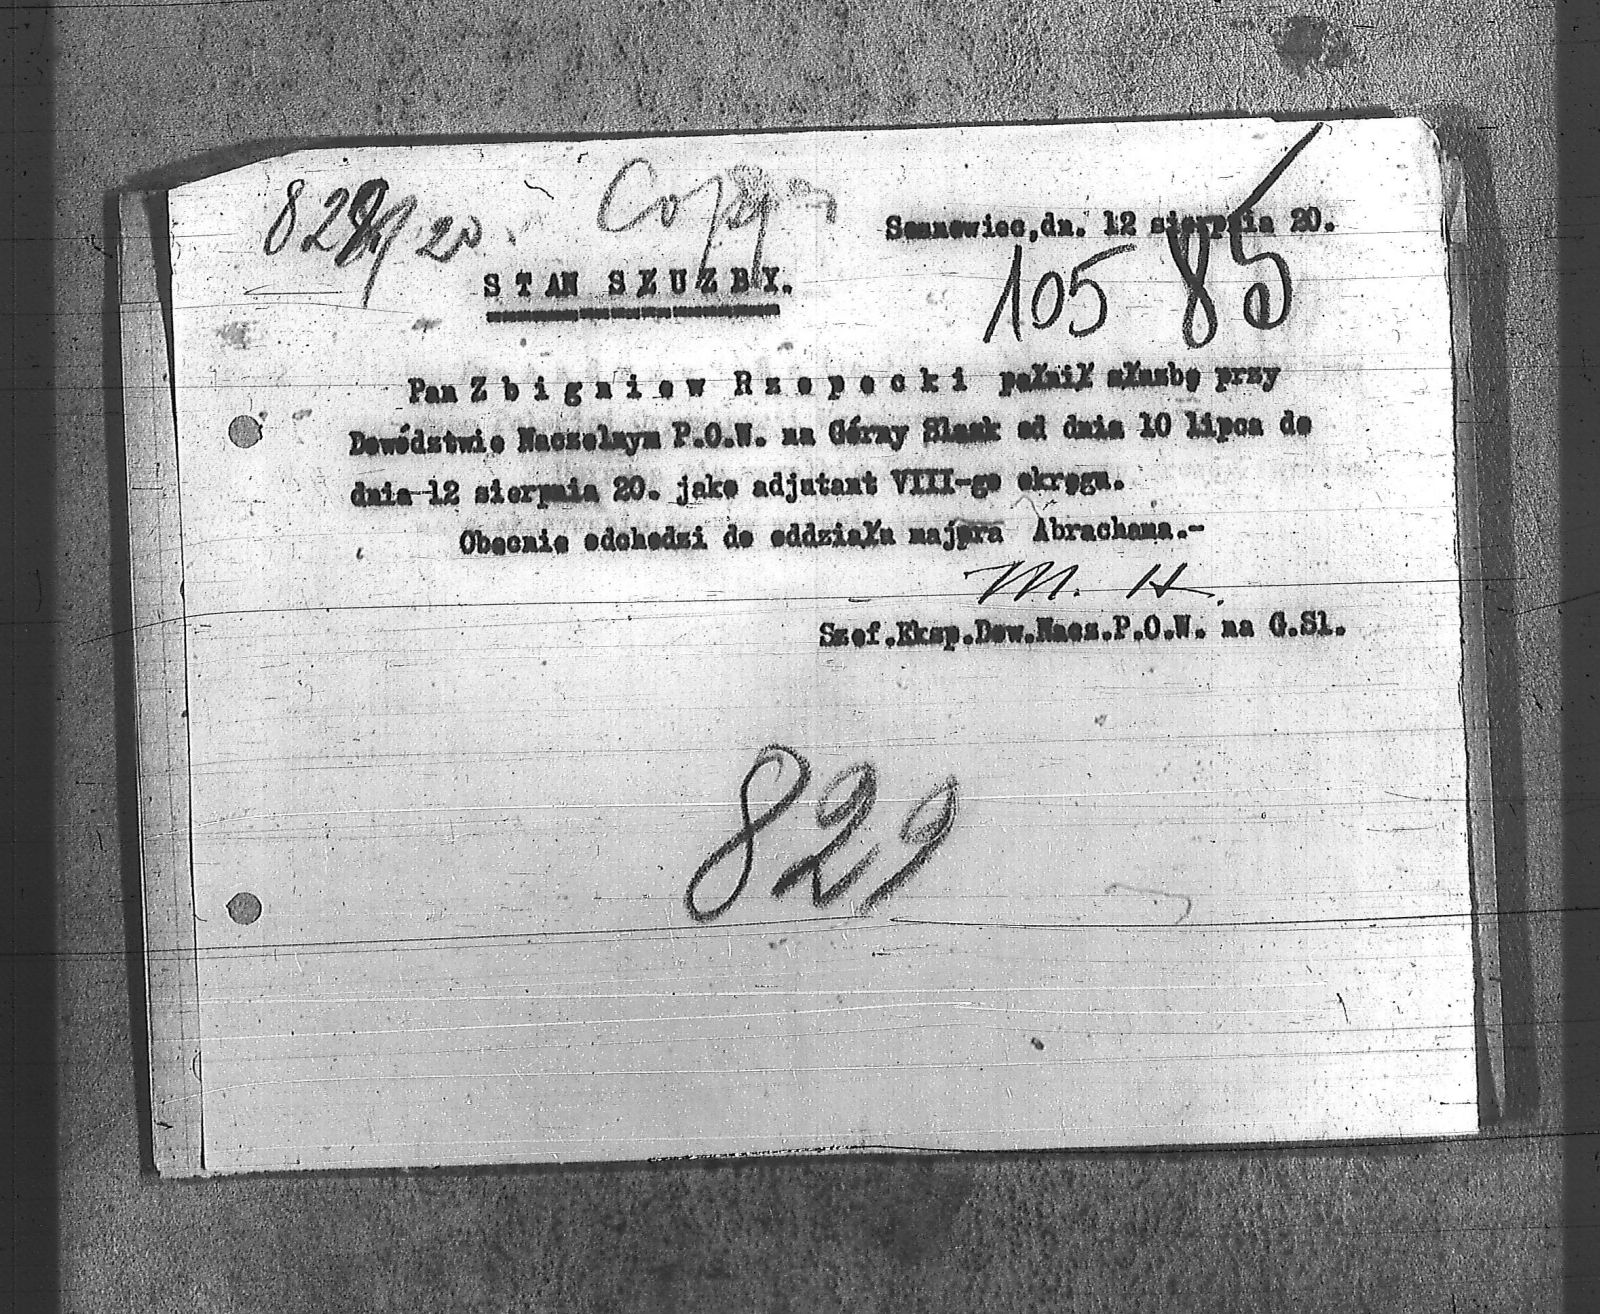 829/20. Copja
Sosnowiec,dn. 12 sierpnia 20.
105 85
STAN SŁUŻBY.
Pan Zbigniew Rzepecki pełnił służbę przy
Dowództwie Naczelnym P.O.W. na Górny Slask od dnia 10 lipca do
dnia 12 sierpnia 20. jako adjutant VIII-go okręgu.
Obecnie odchodzi do oddziału majora Abrachama.-
M. H.
Szef.Eksp.Dow.Nacz.P.O.W. na G.Sl.
829